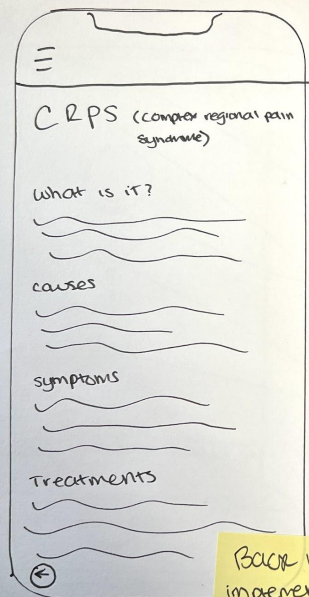 CRPS (complex regional pain
syndrome)
What is it?
causes
symptoms
Treatments
Back